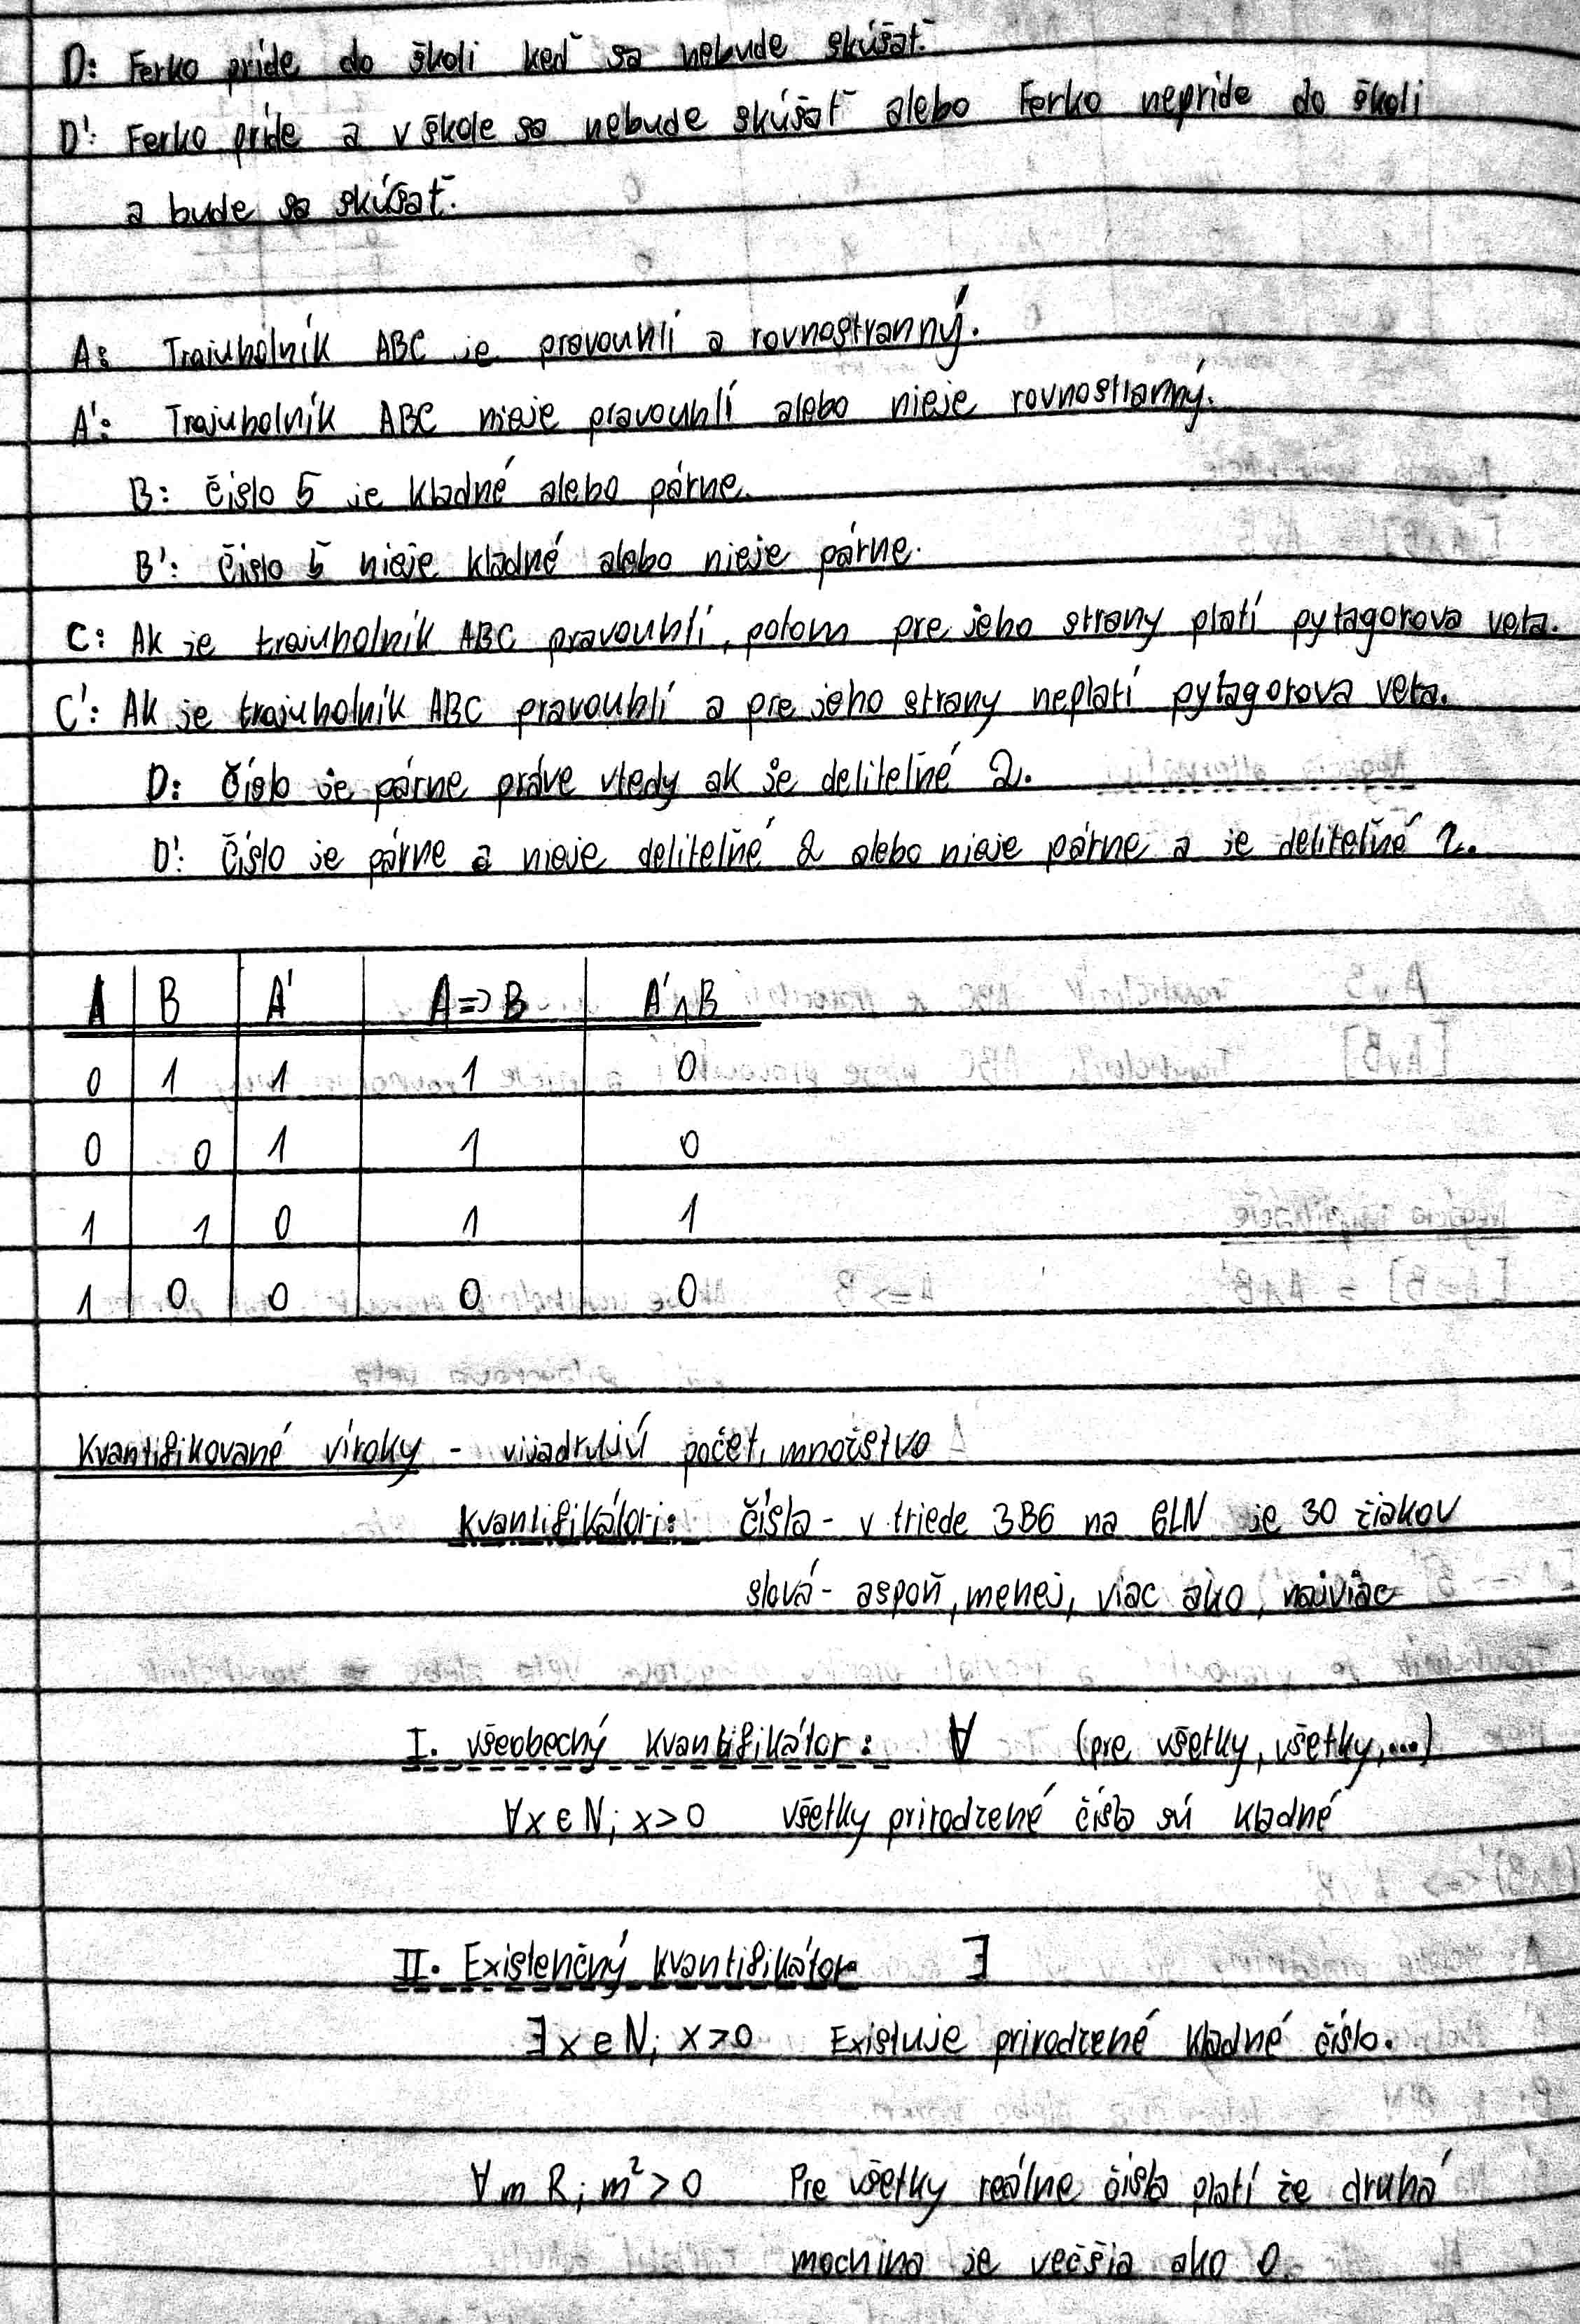 D: Ferko príde do školi keď sa nebude skúšať.
D': Ferko príde a v škole sa nebude skúšať alebo Ferko nepríde do školi
a bude sa skúšať.
A: Trojuholník ABC je pravouhlí a rovnostranný.
A': Trojuholník ABC nieje pravouhlí alebo nieje rovnostranný.
B: Číslo 5 je kladné alebo párne.
B': Číslo 5 nieje kladné alebo nieje párne.
C: Ak je trojuholník ABC pravouhlí, potom pre jeho strany platí pytagorova veta.
C': Ak je trojuholník ABC pravouhlí a pre jeho strany neplatí pytagorova veta.
D: Číslo je párne práve vtedy ak je deliteľné 2.
D': Číslo je párne a nieje deliteľné 2 alebo nieje párne a je deliteľné 2.
A B A' A=>B A'∧B
0 1 1 1 0
0 0 1 1 0
1 1 0 1 1
1 0 0 0 0
Kvantifikované víroky - vijadrujú počet, množstvo
Kvantifikátori: čísla - v triede 3B6 na GLN je 30 žiakov
slová - aspoň, menej, viac ako, najviac
I. všeobecný kvantifikátor: ∀ (pre všetky, všetky,...)
∀x∈N; x>0 všetky prirodzené čísla sú kladné
II. Existenčný kvantifikátor ∃
∃x∈N; x>0 Existuje prirodzené kladné číslo.
∀m R; m²>0 Pre všetky reálne čísla platí že druhá
mocnina je večšia ako 0.